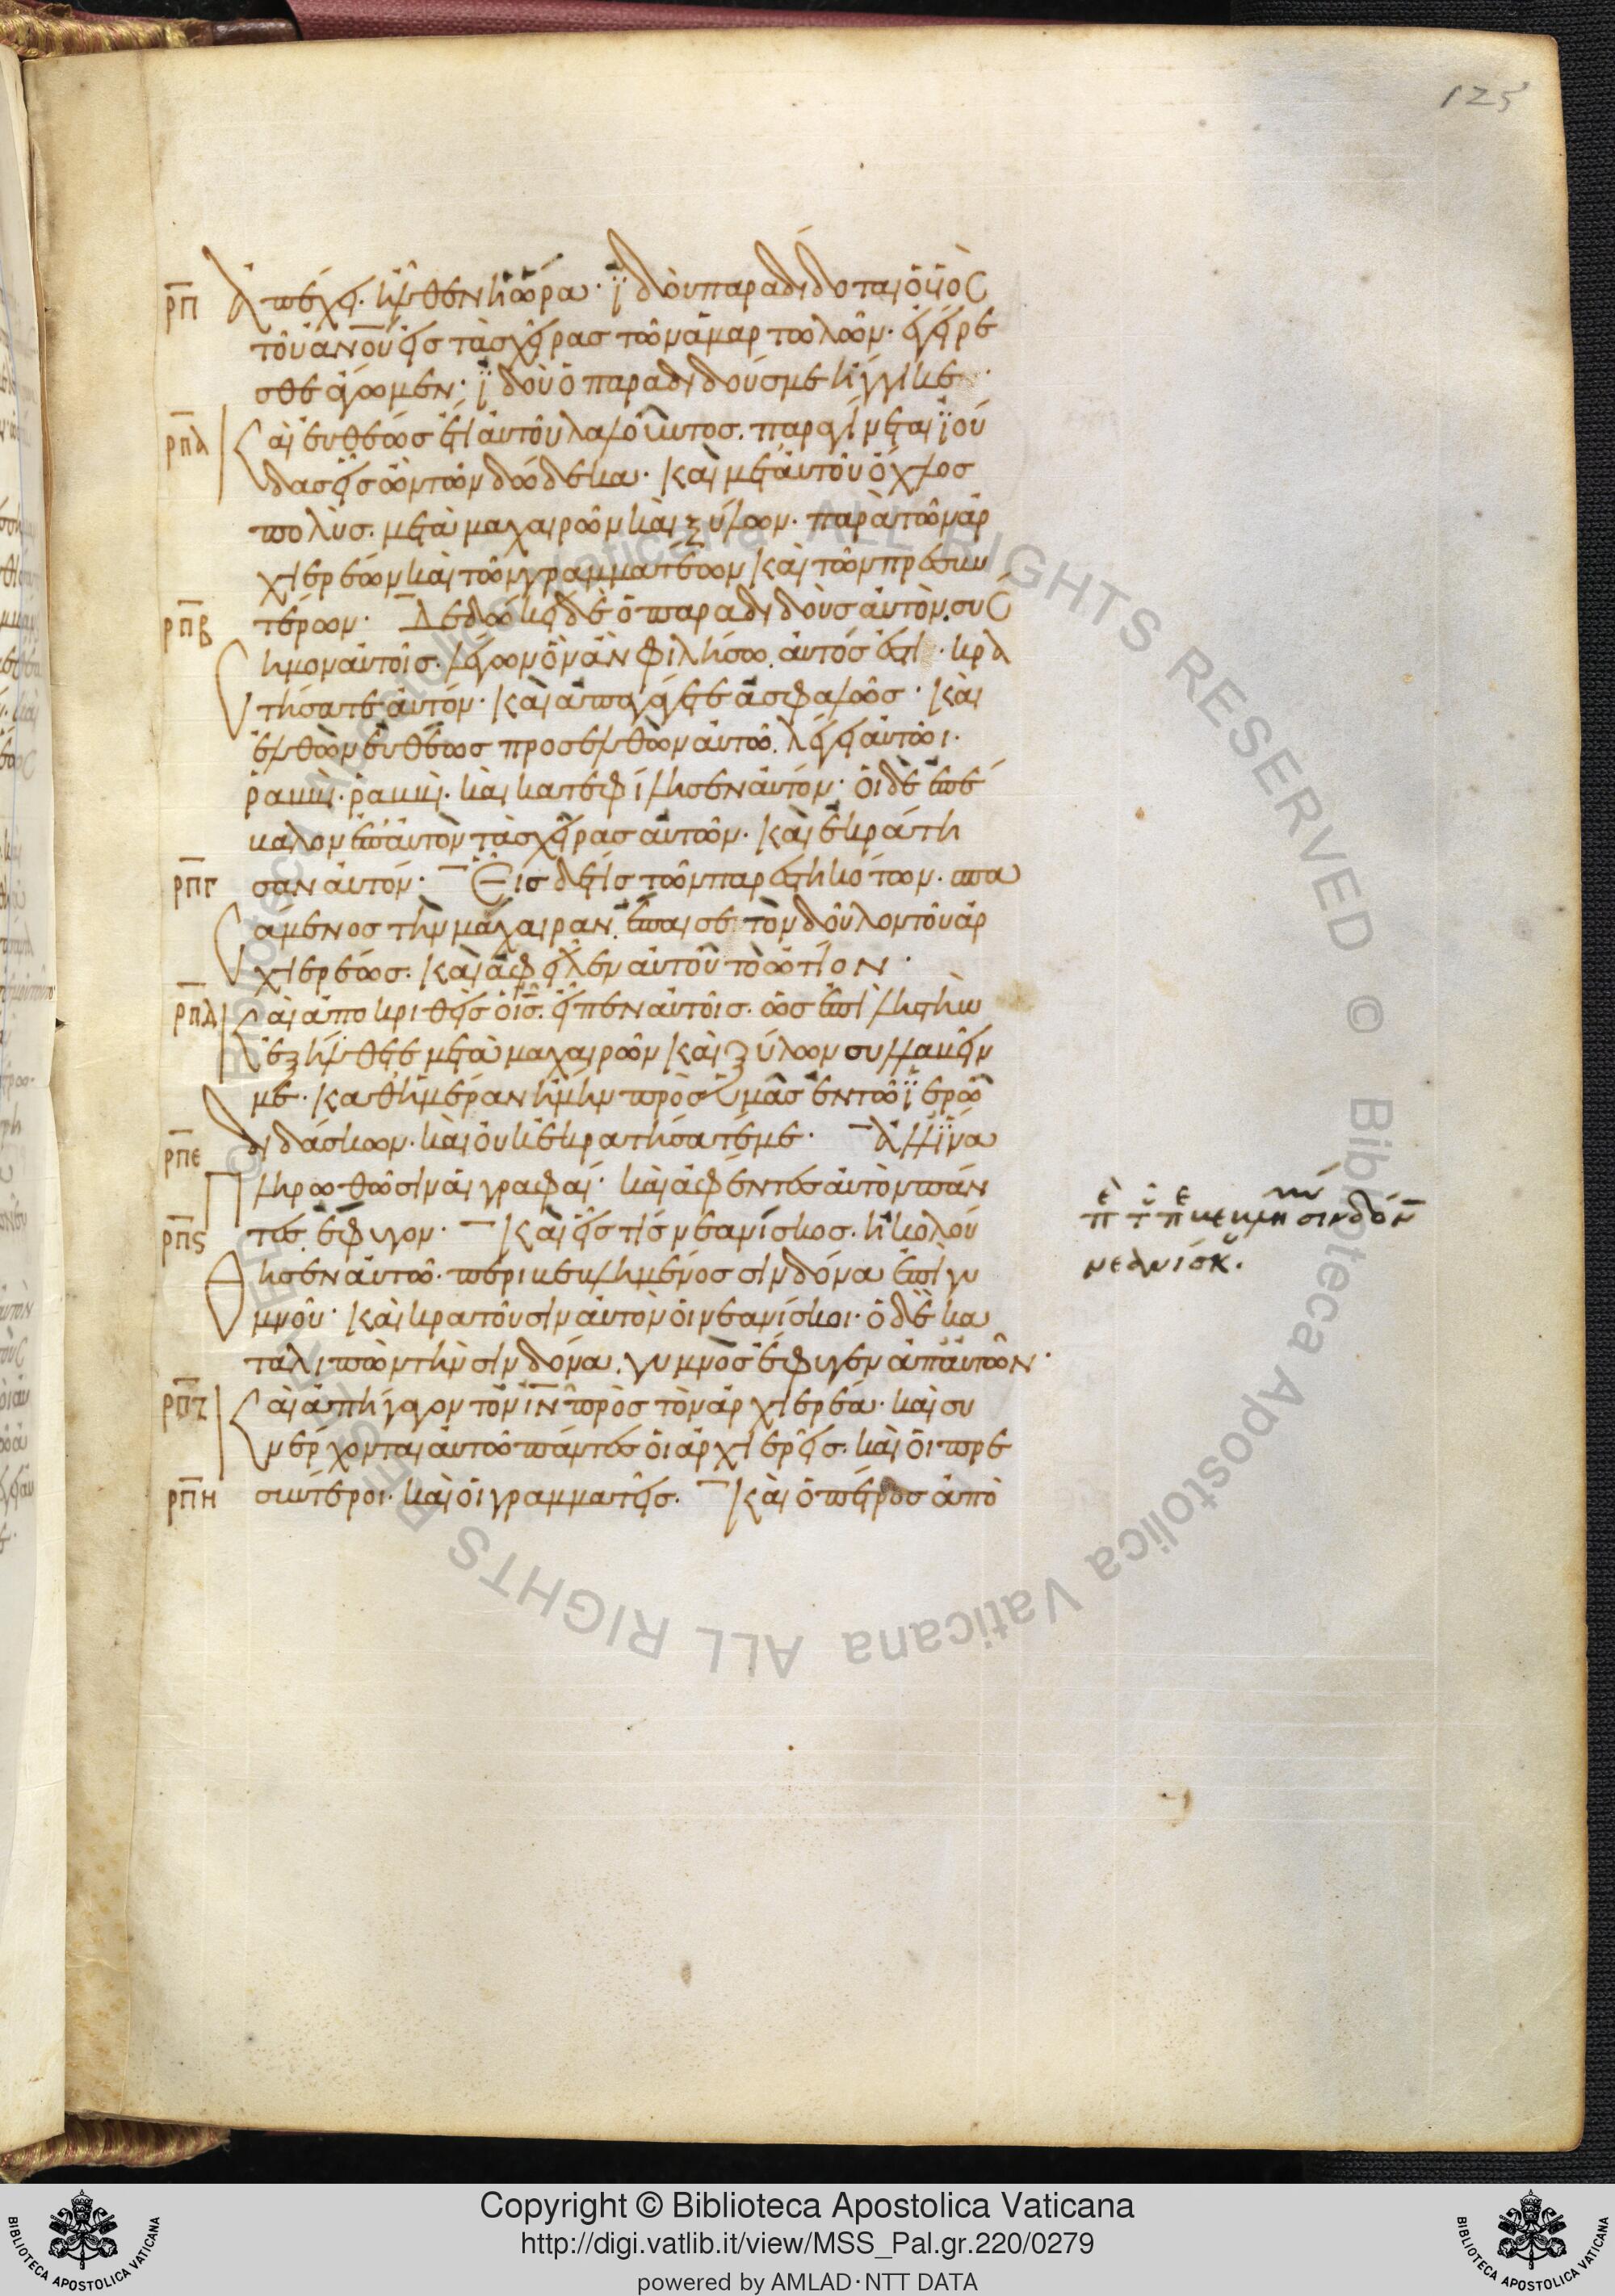 125
ρπ ἀπέχει. ἦλθεν ἡ ὥρα· ἰδοὺ παραδίδοται ὁ υἱὸς
τοῦ ἀνου εἰς τὰς χεῖρας τῶν ἁμαρτωλῶν. ἐγείρε
σθε ἄγωμεν· ἰδοὺ ὁ παραδιδούς με ἤγγικε·
ρπα Καὶ εὐθέως ἔτι αὐτοῦ λαλοῦντος. παραγίνεται ἰού
δας εἷς ὢν τῶν δώδεκα· καὶ μετ' αὐτοῦ ὄχλος
πολὺς. μετὰ μαχαιρῶν καὶ ξύλων. παρὰ τῶν ἀρ
χιερέων καὶ τῶν γραμματέων καὶ τῶν πρεσβυ
ρπβ τέρων· Δεδώκει δὲ ὁ παραδιδοὺς αὐτὸν. συσ
σημον αὐτοῖς. λέγων ὃν ἂν φιλήσω. αὐτός ἐστι· κρα
τήσατε αὐτόν· καὶ ἀπαγάγετε ἀσφαλῶς· καὶ
ἐλθὼν εὐθέως προσελθὼν αὐτῶ. λέγει αὐτῶι.
ῥαββι. ῥαββι. καὶ κατεφίλησεν αὐτόν· οἱ δὲ ἐπέ
βαλον ἐπ' αὐτὸν τὰς χεῖρας αὐτῶν. καὶ ἐκράτη
ρπγ σαν αὐτόν· Εἷς δέ τις τῶν παρεστηκότων. σπα
σάμενος τὴν μάχαιραν. ἔπαισε τὸν δοῦλον τοῦ ἀρ
χιερέως. καὶ ἀφεῖλεν αὐτοῦ τὸ ὠτίον·
ρπδ Καὶ ἀποκριθεὶς ὁ ις. εἶπεν αὐτοῖς. ὡς ἐπὶ ληστὴν
ἐξήλθετε μετὰ μαχαιρῶν καὶ ξύλων συλλαβεῖν
με. καθ' ἡμέραν ἤμην πρὸς ὑμᾶς ἐν τῶ ἱερῶ
διδάσκων. καὶ οὐκ ἐκρατήσατέ με· Ἀλλ' ἵνα
ρπε πληρωθῶσιν αἱ γραφαί· καὶ ἀφέντες αὐτὸν πάν
ρπς τες. ἔφυγον· Καὶ εἷς τίς νεανίσκος. ἠκολού
θησεν αὐτῶ. περιβεβλημένος σινδόνα ἐπὶ γυ
μνοῦ· καὶ κρατοῦσιν αὐτὸν οἱ νεανίσκοι· ὁ δὲ κα
ταλιπὼν τὴν σινδόνα. γυμνὸς ἔφυγεν ἀπ' αὐτῶν·
ρπζ Καὶ ἀπήγαγον τὸν ιν πρὸς τὸν ἀρχιερέα· καὶ συ
νέρχονται αὐτῶ πάντες οἱ ἀρχιερεῖς. καὶ οἱ πρε
ρπη σβύτεροι. καὶ οἱ γραμματεῖς. Καὶ ὁ πέτρος ἀπὸ
σινδόν
νεανίσκ.
Copyright © Biblioteca Apostolica Vaticana
http://digi.vatlib.it/view/MSS_Pal.gr.220/0279
powered by AMLAD·NTT DATA
BIBLIOTECA APOSTOLICA VATICANA
BIBLIOTECA APOSTOLICA VATICANA
© Biblioteca Apostolica Vaticana ALL RIGHTS RESERVED © Biblioteca Apostolica Vaticana ALL RIGHTS RESERVED